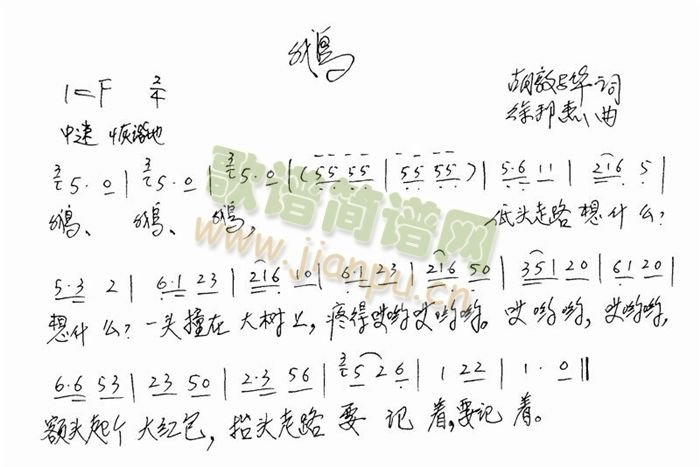 鹅
1=F 2/4
胡敦华 词
徐邦杰 曲
中速 诙谐地
3 5·0 | 3 5·0 | 3 5·0 | (55 55 | 55 55) | 5·6 11 | 216 5 |
鹅、 鹅、 鹅, 低头走路想什么?
5·3 2 | 6·1 23 | 216 10 | 6·1 23 | 216 50 | 351 20 | 61 20 |
想什么?一头撞在大树上,疼得哎哟哎哟哟。哎哟哟,哎哟哟,
6·6 53 | 23 50 | 2·3 56 | 3 5 26 | 1 22 | 1·0 ||
额头起个大红包,抬头走路要记着,要记着。
歌谱简谱网
www.jianpu.cn